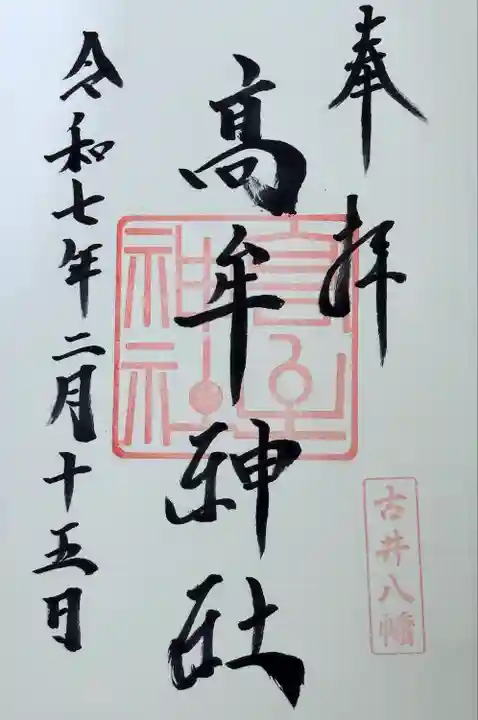 奉拝
古井八幡
高牟神社
高牟神社
令和七年二月十五日